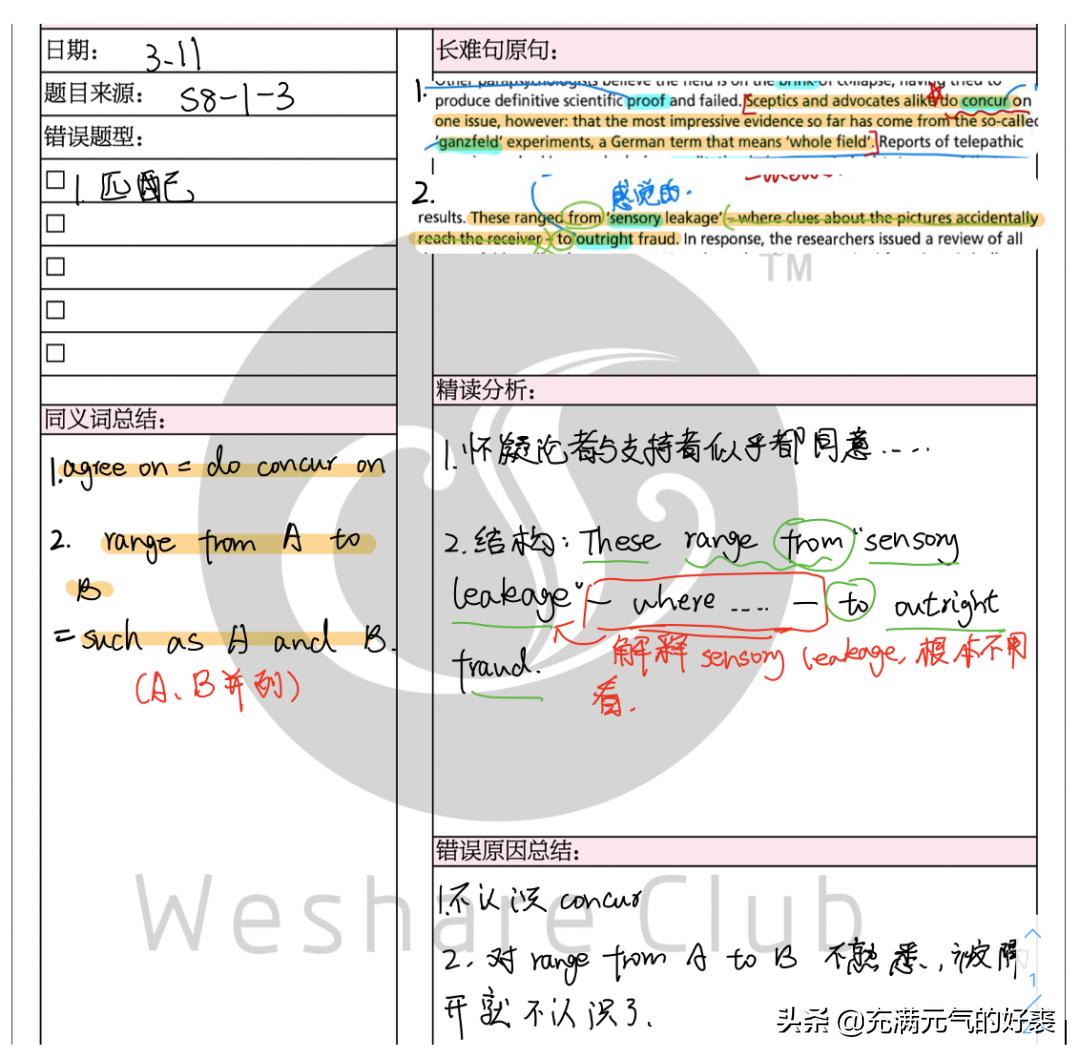 日期： 3.11
题目来源： S8-1-3
错误题型：
□ 1. 匹配
□
□
□
□
同义词总结：
1. agree on = do concur on
2. range from A to
B
= such as A and B.
(A、B并列)
长难句原句：
1.
produce definitive scientific proof and failed. Sceptics and advocates alike do concur on
one issue, however: that the most impressive evidence so far has come from the so-calle
'ganzfeld' experiments, a German term that means 'whole field'. Reports of telepathic
2.
感觉的.
results. These ranged from 'sensory leakage' – where clues about the pictures accidentally
reach the receiver – to outright fraud. In response, the researchers issued a review of all
TM
精读分析：
1. 怀疑论者与支持者似乎都同意.....
2. 结构: These range from "sensory
leakage" – where .... – to outright
fraud.
解释 sensory leakage, 根本不用
看.
错误原因总结：
1. 不认识 concur
2. 对 range from A to B 不熟悉, 被隔
开就不认识了.
Weshare Club
1
2
头条 @充满元气的好裴